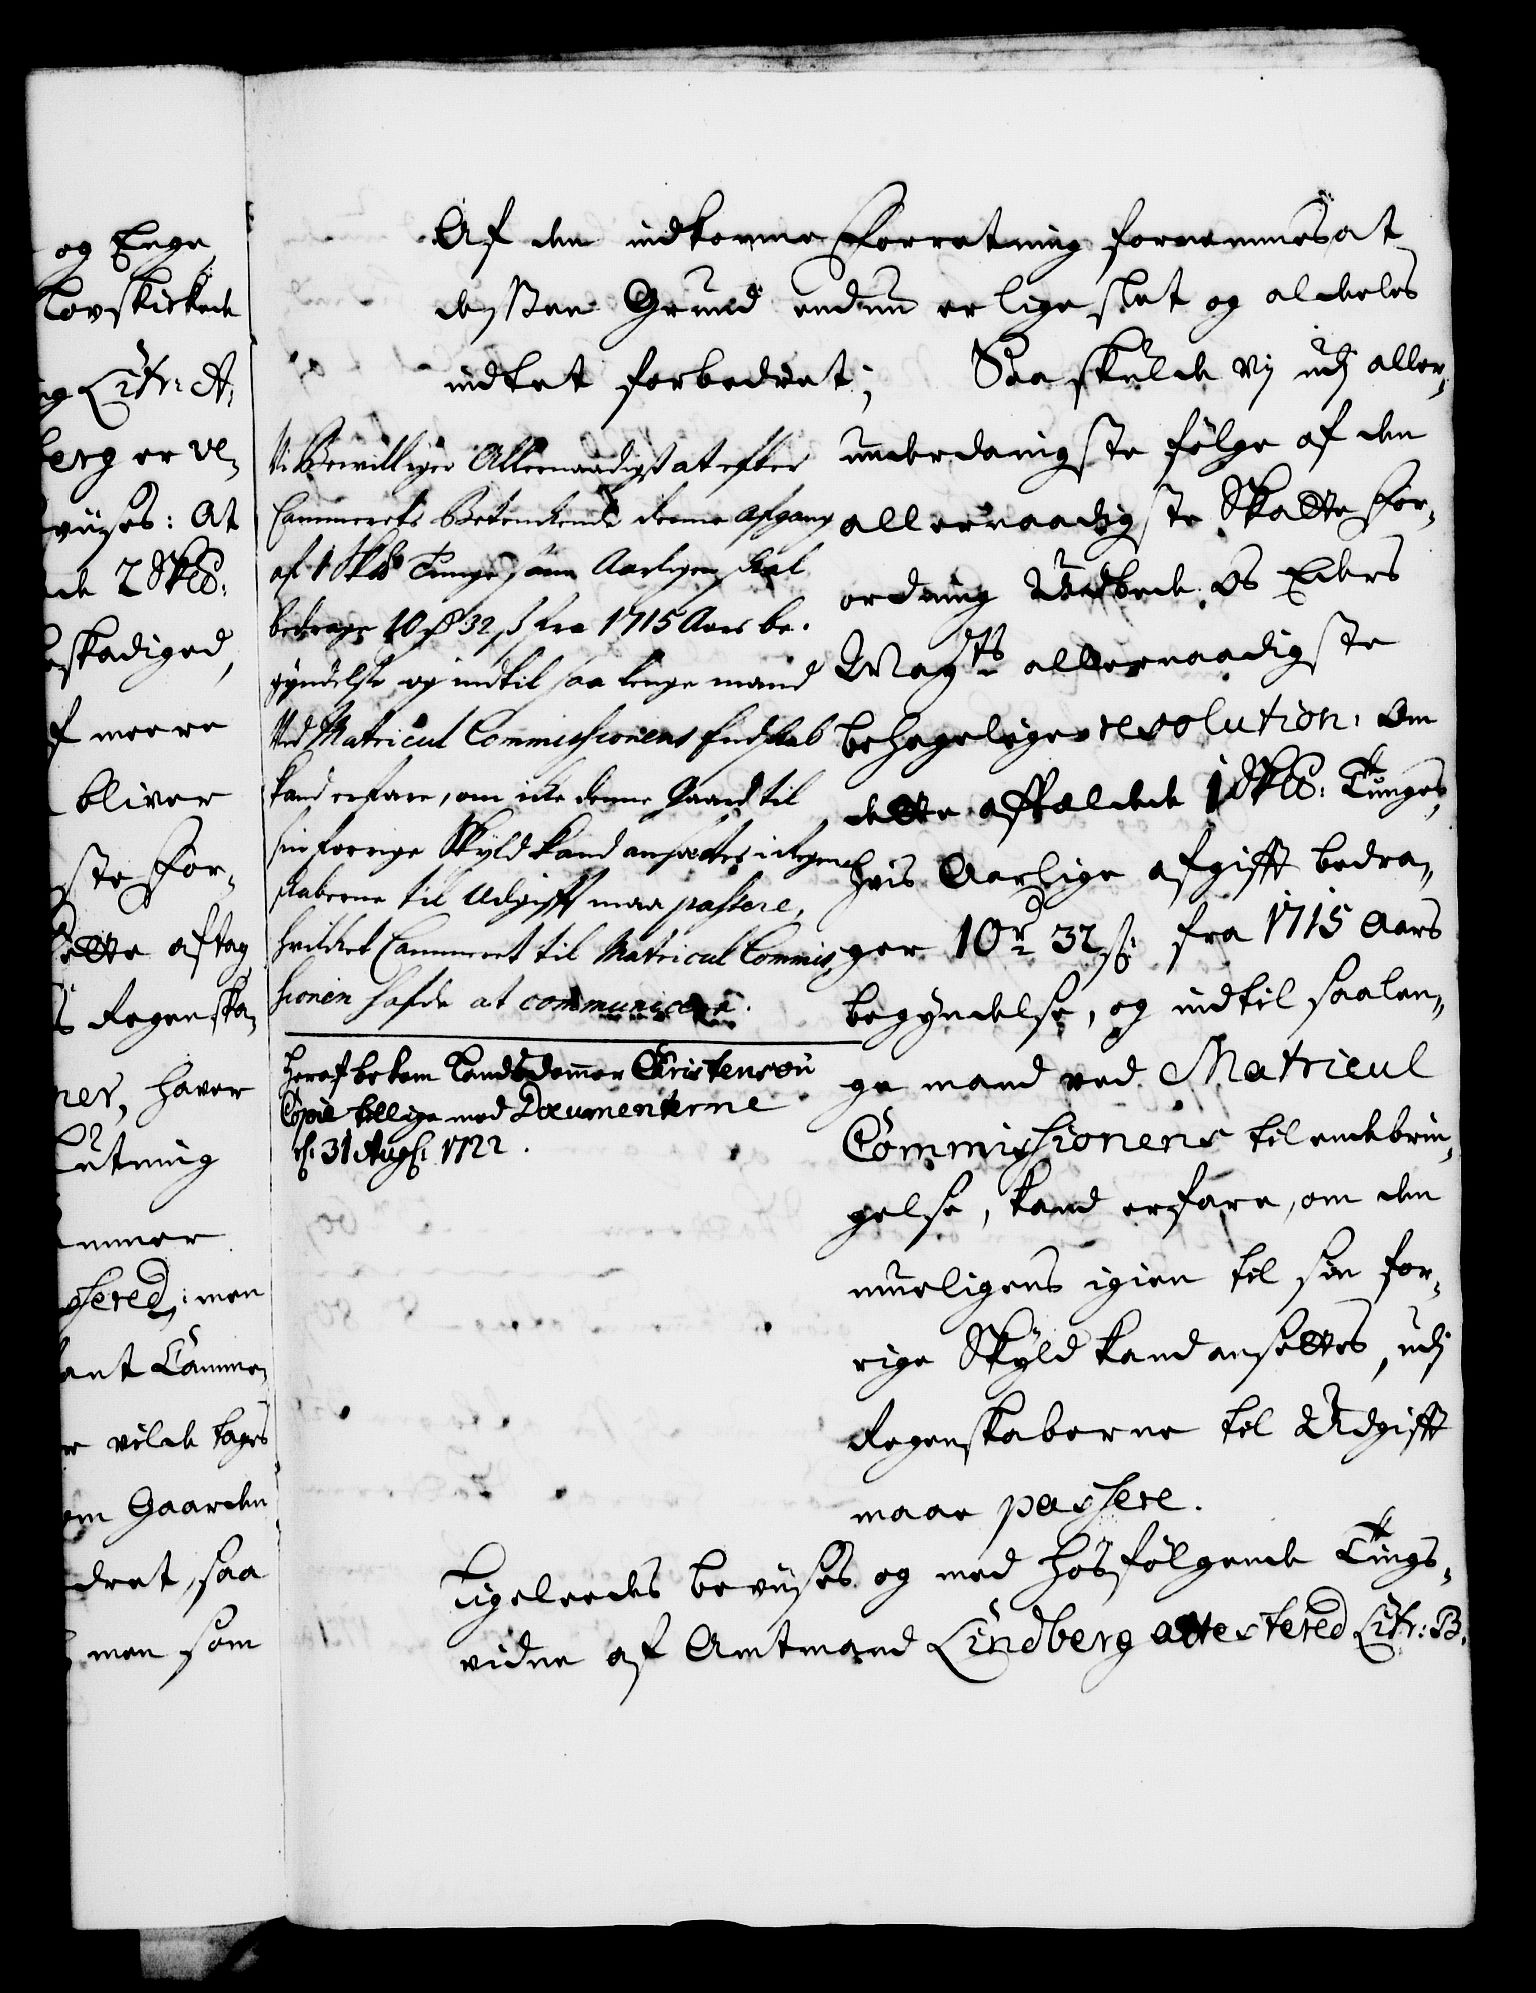 og Enge
Lovskickede
og Litr: A:
berg er ve¬
vüses: At
de 2 Skb:
beskadiged,
af meere
bliver
ste For¬
dette aftag
s Regenska¬
ner, haver
Lutning
ummer
hered; men
ant Camme¬
er vilde tages
om Gaarden
dret, saa
men som
Af den indkomne Forretning fornemmes at
dessen Grund endnu er lige slet og aldeles
indtet forbedret; Saa skulde vij udj aller¬
underdanigste følge af den
allernaadigste Skatte For¬
ordning Udbede Os Eders
Mayts allernaadigste
behagelige resolution: Om
dette affældede 1 Skb: Tunges,
hvis Aarlige afgifft bedra¬
ger 10 rd 32 ß fra 1715 Aars
begyndelse, og indtil saalen¬
ge mand ved Matricul
Commissionens til endebrin¬
gelse, kand erfare, om den
mueligens igien til sin for¬
rige Skyld kand ansettes, udj
Regenskaberne til Udgifft
maae passere.
Vi Bevilliger Allernaadigst at efter
Cammerets Betenkende denne Afgang
af 1 Skb Tunge som Aarligen skal
bedrage 10 rd 32 ß fra 1715 Aars be¬
gyndelse og indtil saa lenge mand
Ved Matricul Commissionens Endskab
kand erfare, om icke denne Gaard til
sin forrige Skyld kand ansættes i Regen
skaberne til Udgifft maa passere,
hvilcket Cammeret til Matricul Commis
sionen hafde at communicere.
Heraf bekom Landsdommer Christensøn
Copie tillige med Documenterne
d: 31 Aug: 1722.
Ligeleedes bevüses og med hosfølgende Tings¬
vidne af Amtmand Lindberg attestered Litr: B.